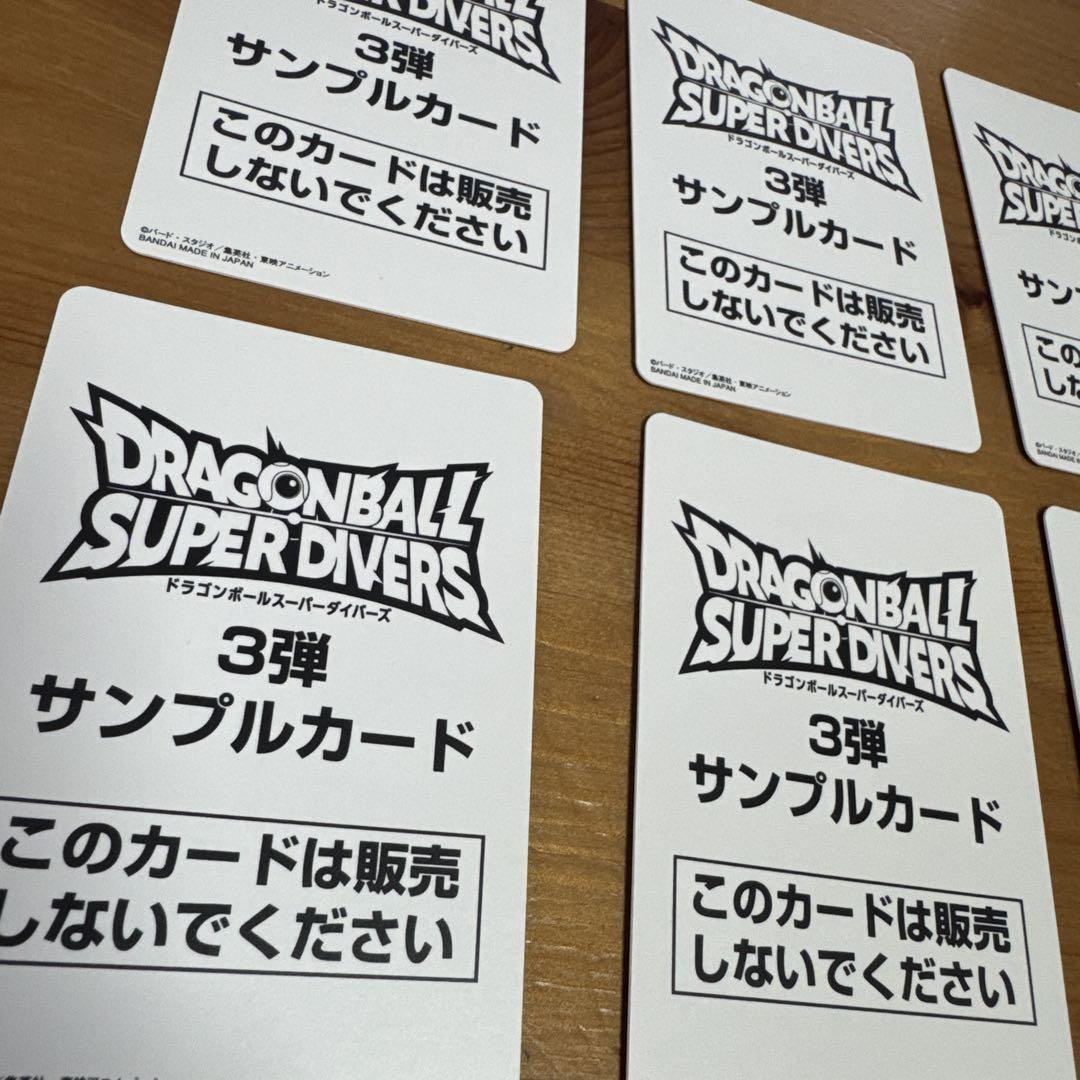 DIVERS
ドラゴンボールスーパーダイバーズ
3弾
サンプルカード
このカードは販売
しないでください
©バード・スタジオ／集英社・東映アニメーション
BANDAI MADE IN JAPAN
DRAGONBALL
SUPER DIVERS
ドラゴンボールスーパーダイバーズ
3弾
サンプルカード
このカードは販売
しないでください
©バード・スタジオ／集英社・東映アニメーション
BANDAI MADE IN JAPAN
DRAGO
SUPER
ドラゴンボ
サン
この
しな
©バード・スタジオ
BANDAI MADE IN
DRAGONBALL
SUPER DIVERS
ドラゴンボールスーパーダイバーズ
3弾
サンプルカード
このカードは販売
しないでください
DRAGONBALL
SUPER DIVERS
ドラゴンボールスーパーダイバーズ
3弾
サンプルカード
このカードは販売
しないでください